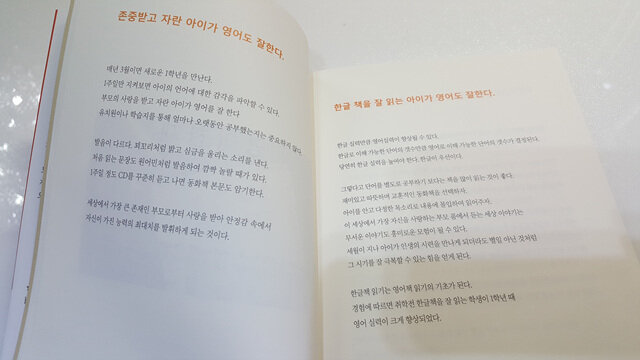 존중받고 자란 아이가 영어도 잘한다.
매년 3월이면 새로운 1학년을 만난다.
1주일만 지켜보면 아이의 언어에 대한 감각을 파악할 수 있다.
부모의 사랑을 받고 자란 아이가 영어를 잘 한다
유치원이나 학습지를 통해 얼마나 오랫동안 공부했는지는 중요하지 않다.
발음이 다르다. 꾀꼬리처럼 밝고 심금을 울리는 소리를 낸다.
처음 읽는 문장도 원어민처럼 발음하여 깜짝 놀랄 때가 있다.
1주일 정도 CD를 꾸준히 듣고 나면 동화책 본문도 암기한다.
세상에서 가장 큰 존재인 부모로부터 사랑을 받아 안정감 속에서
자신이 가진 능력의 최대치를 발휘하게 되는 것이다.
한글 책을 잘 읽는 아이가 영어도 잘한다.
한글 실력만큼 영어실력이 향상될 수 있다.
한글로 이해 가능한 단어의 갯수만큼 영어로 이해 가능한 단어의 갯수가 결정된다.
당연히 한글 실력을 높여야 한다. 한글이 우선이다.
그렇다고 단어를 별도로 공부하기 보다는 책을 많이 읽는 것이 좋다.
재미있고 따뜻하며 교훈적인 동화책을 선택하자.
아이를 안고 다정한 목소리로 내용에 몰입하여 읽어주자.
이 세상에서 가장 자신을 사랑하는 부모 품에서 듣는 세상 이야기는
무서운 이야기도 흥미로운 모험이 될 수 있다.
세월이 지나 아이가 인생의 시련을 만나게 되더라도 별일 아닌 것처럼
그 시기를 잘 극복할 수 있는 힘을 얻게 된다.
한글책 읽기는 영어책 읽기의 기초가 된다.
경험에 따르면 취학전 한글책을 잘 읽는 학생이 1학년 때
영어 실력이 크게 향상되었다.